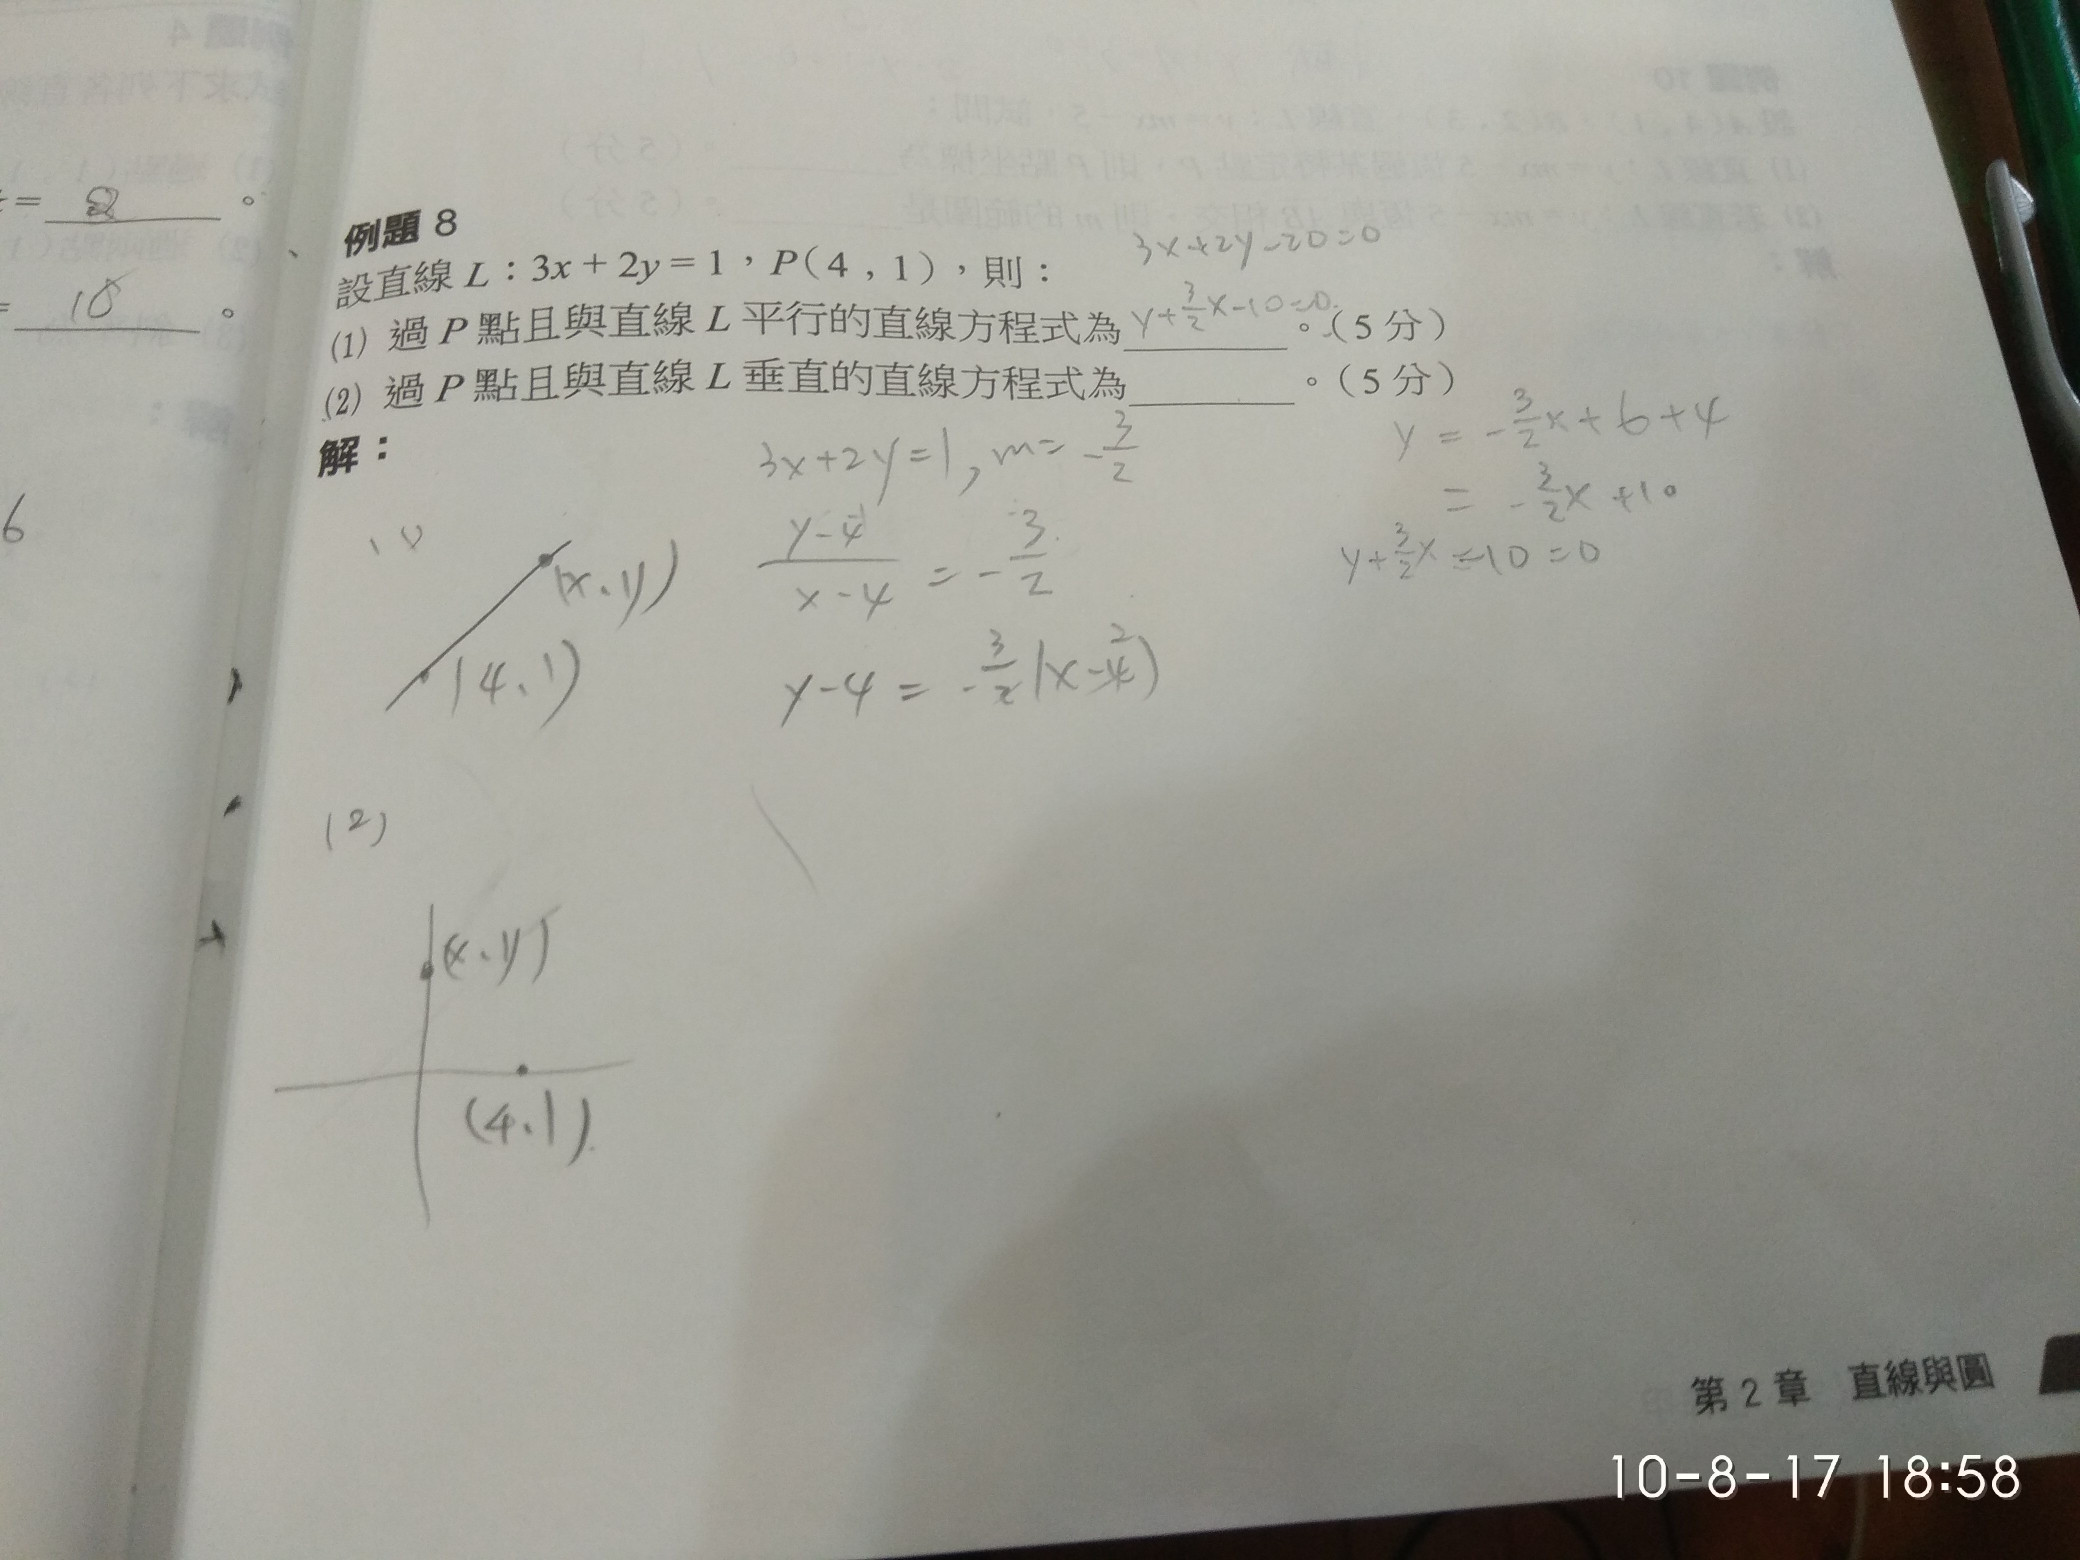 = 8 。
= 10 。
6
例題 8
設直線 L：3x + 2y = 1，P( 4 , 1 )，則：
3x+2y-20=0
(1) 過 P 點且與直線 L 平行的直線方程式為 y+3/2x-10=0 。( 5 分 )
(2) 過 P 點且與直線 L 垂直的直線方程式為________。( 5 分 )
解：
3x+2y=1, m= -3/2
y = -3/2x+6+4
(x、y)
(y-4)/(x-4) = -3/2
= -3/2x+10
y+3/2x-10=0
(4、1)
y-4 = -3/2(x-4)
(2)
(x、y)
(4、1)
第 2 章　直線與圓
10-8-17 18:58